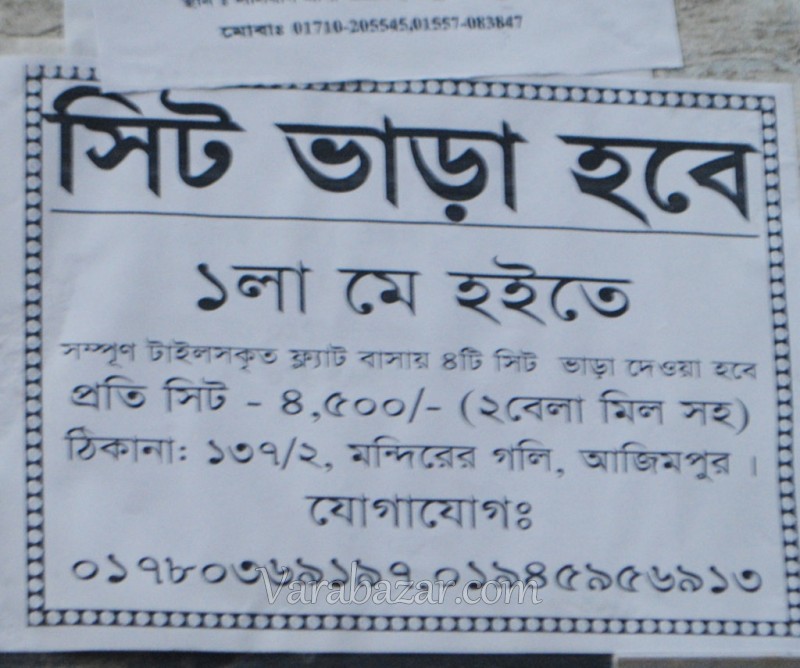 মোবাঃ 01710-205545,01557-083847
সিট ভাড়া হবে
১লা মে হইতে
সম্পূণ টাইলসকৃত ফ্ল্যাট বাসায় ৪টি সিট ভাড়া দেওয়া হবে
প্রতি সিট - ৪,৫০০/- (২বেলা মিল সহ)
ঠিকানা: ১৩৭/২, মন্দিরের গলি, আজিমপুর ।
যোগাযোগঃ
০১৭৮০৩৬৯১৯৭,০১৯৪৫৯৫৬৯১৩
Varabazar.com